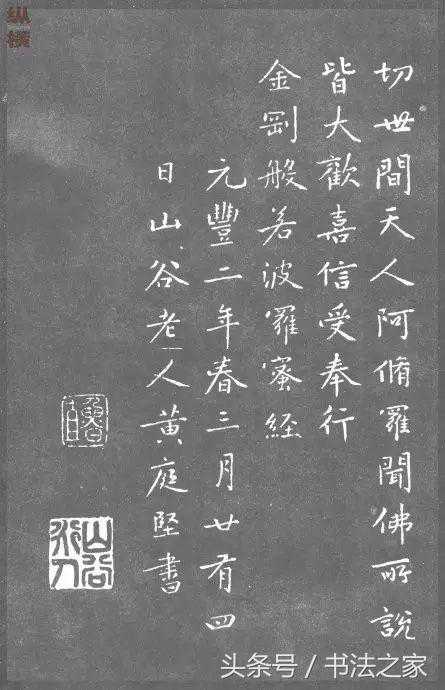 切世間天人阿脩羅聞佛所說
皆大歡喜信受奉行
金剛般若波羅蜜經
元豐二年春三月廿有四
日山谷老人黄庭堅書
纵横
头条号 / 书法之家